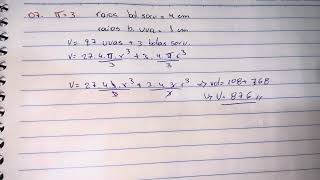 07. π=3 raios bol sorv = 4 cm
raios b. uva = 1 cm
V = 27 uvas + 3 bolas sorv.
V = 27.4.π.r³/3 + 3.4.π.r³/3
V = 27.4.3.r³/3 + 3.4.3.r³/3 → vol = 108 + 768
↳ V = 876